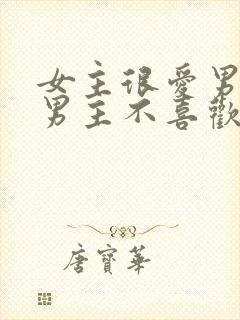 女主很愛男
男主不喜歡
唐寶華